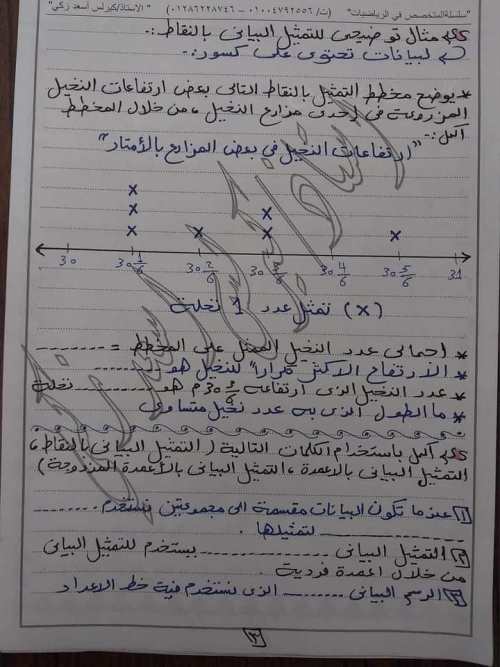 "سلسلة المتخصص في الرياضيات" (ت/ ٠١٠٠٤٧٩٢٥٥٦ - ٠١٢٨٦٢٢٨٧٤٦) "الأستاذ/كيرلس أسعد زكي"
مثال توضيحى للتمثيل البيانى بالنقاط:-
لبيانات تحتوى على كسور:-
* يوضح مخطط التمثيل بالنقاط التالى بعض ارتفاعات النخيل
المزروعة فى إحدى مزارع النخيل، من خلال المخطط
أكمل:-
"ارتفاعات النخيل في بعض المزارع بالأمتار"
٣٠ ٣٠ ١/٦ ٣٠ ٢/٦ ٣٠ ٤/٦ ٣٠ ٥/٦ ٣١
(x) تمثل عدد 1 نخلة
* إجمالى عدد النخيل الممثل على المخطط = ........
* الارتفاع الاكثر تكراراً للنخيل هو ........
* عدد النخيل الذى ارتفاعه ٣٠ م هو ........ نخلة
* ما الطول الذى به عدد نخيل متساوى
أكمل باستخدام الكلمات التالية (التمثيل البيانى بالنقاط،
التمثيل البيانى بالاعمدة، التمثيل البيانى بالأعمدة المزدوجة)
١ عندما تكون البيانات مقسمة الى مجموعتين نستخدم ........
........ لتمثيلها.
٢ التمثيل البيانى ........ يستخدم للتمثيل البيانى
من خلال اعمدة فردية.
٣ الرسم البيانى ........ الذى نستخدم فية خط الاعداد
٣